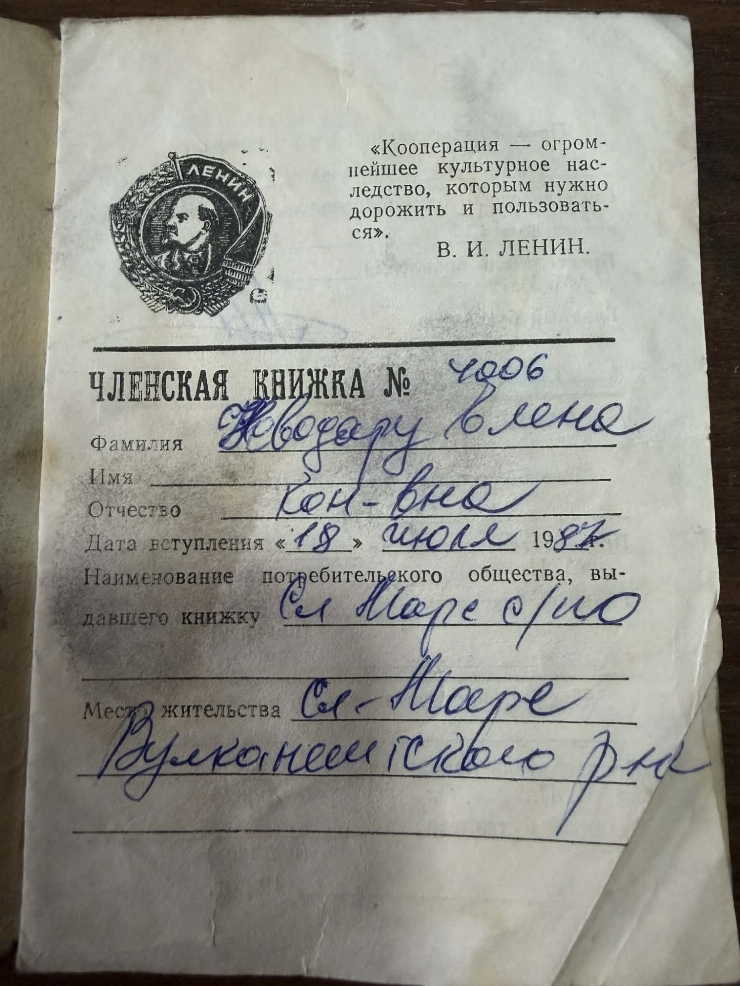 ЛЕНИН
«Кооперация — огром-
нейшее культурное нас-
ледство, которым нужно
дорожить и пользовать-
ся».
В. И. ЛЕНИН.
ЧЛЕНСКАЯ КНИЖКА № 4006
Фамилия Новодару Елена
Имя
Отчество Кон-вна
Дата вступления «18» июля 1987г.
Наименование потребительского общества, вы-
давшего книжку Сл Маре с/по
Место жительства Сл-Маре
Вулканештского р-на